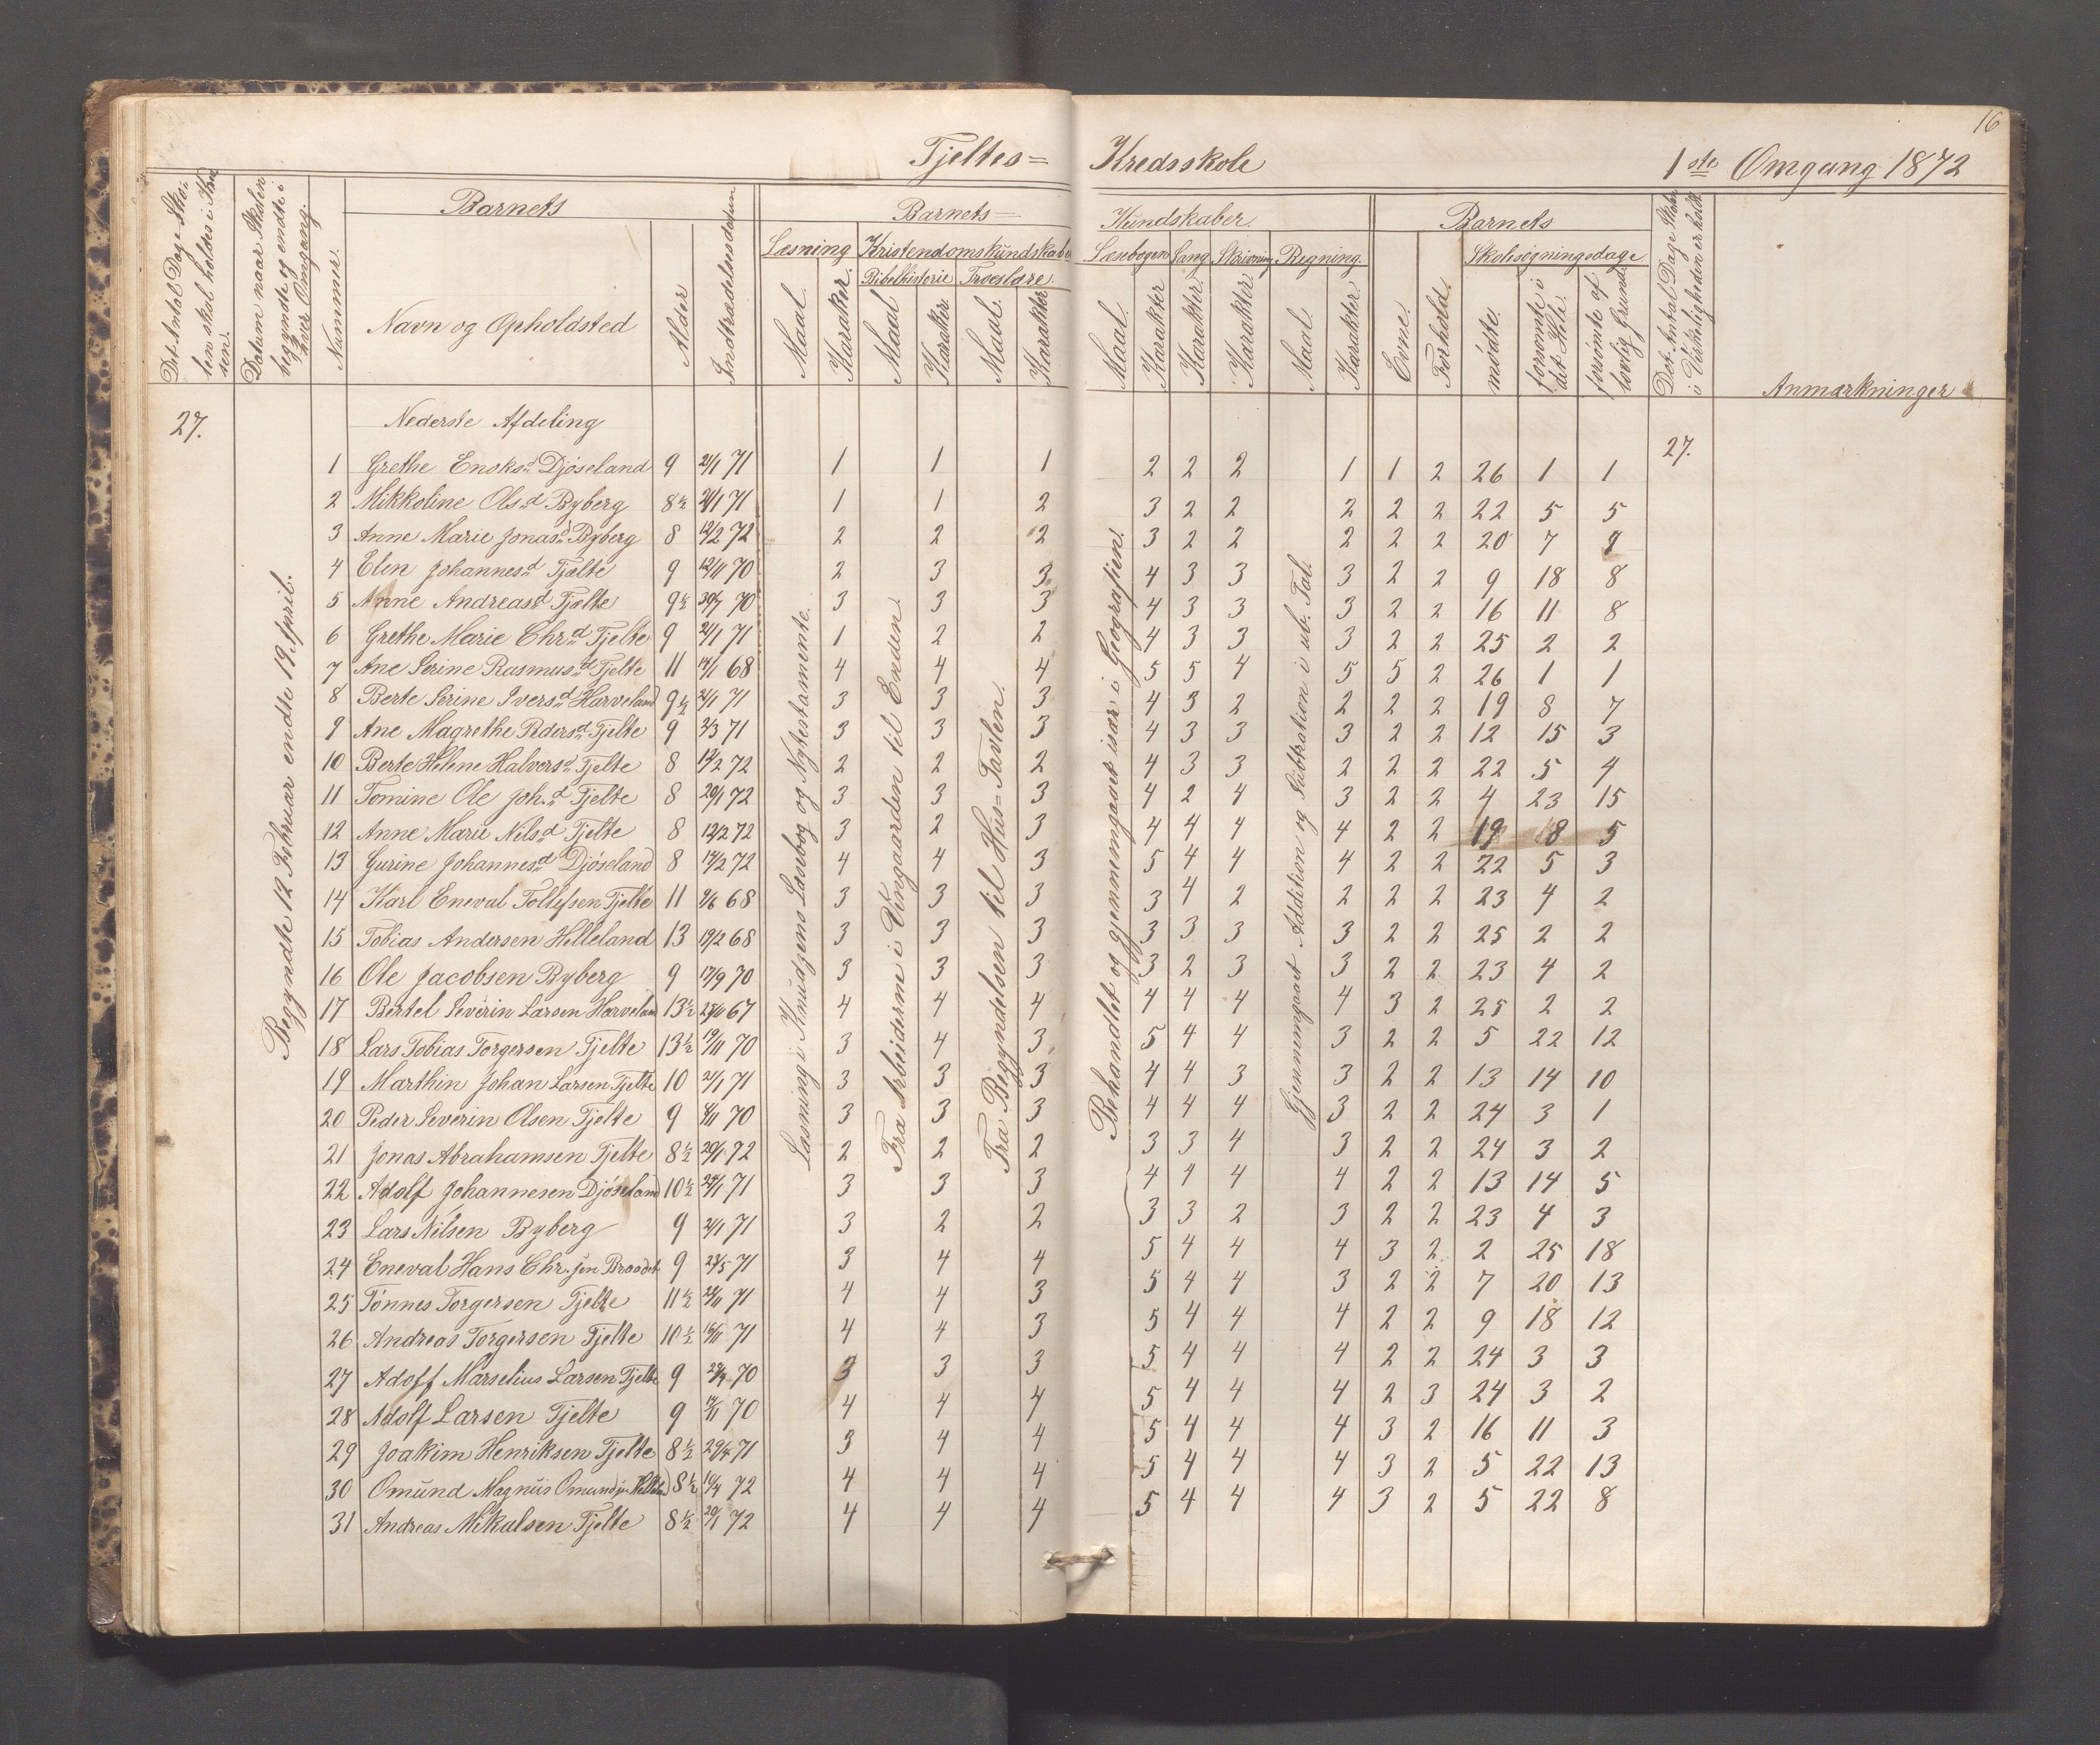 16
Tjeltes= Kredsskole 1ste Omgang 1872
Det Antal Dage Skolen skal holdes i Kredsen.
Datum naar Skolen begyndte og endte i hver Omgang.
Nummer.
Barnets
Navn og Opholdsted
Alder
Indtrædelsesdatum
Barnets= Kundskaber.
Læsning
Maal.
Karakter.
Kristendomskundskaber
Bibelhistorie
Maal
Karakter.
Troeslære.
Maal.
Karakter
Læsebogen
Maal.
Karakter
Sang
Karakter.
Skrivning
Karakter
Regning.
Maal.
Karakter.
Barnets
Evne.
Forhold.
Skolesøgningsdage
mødte.
forsømte i det Hele.
forsømte af lovlig Grund.
Det Antal Dage Skolen i Virkeligheden er holdt.
Anmærkninger
27.
Begyndte 12 Februar endte 19 April.
Nederste Afdeling
27.
Læsning i Knudzens Læsebog og Nytestamente.
Fra Arbeiderne i Vingaarden til Enden.
Fra Begyndelsen til Hus=Tavlen.
Behandlet og gjennemgaaet især i Geografien.
Gjennemgaaet Addition og Subtration i ub. Tal.
1 Grethe Enoksd. Djøseland 9 21/1 71 1 1 1 2 2 2 1 1 2 26 1 1
2 Mikkoline Olsd. Byberg 8½ 21/1 71 1 1 2 3 2 2 2 2 2 22 5 5
3 Anne Marie Jonasd. Byberg 8 12/2 72 2 2 2 3 2 2 2 2 2 20 7
4 Elen Johannesd. Tjælte 9 12/11 70 2 3 3 4 3 3 3 2 2 9 18 8
5 Anne Andreasd. Tjælte 9½ 30/7 70 3 3 3 4 3 3 3 2 2 16 11 8
6 Grethe Marie Chr.d. Tjelte 9 21/1 71 1 2 2 4 3 3 3 2 2 25 2 2
7 Ane Serine Rasmusd. Tjelte 11 14/1 68 4 4 4 5 5 4 5 5 2 26 1 1
8 Berte Serine Iversd. Harveland 9½ 21/1 71 3 3 3 4 3 2 2 2 2 19 8 7
9 Ane Magrethe Pedersd. Tjelte 9 2/3 71 3 3 3 4 3 3 3 2 2 12 15 3
10 Berte Helene Halvorsd. Tjelte 8 14/2 72 2 2 2 4 3 3 2 2 2 22 5 4
11 Tomine Ole Joh.d. Tjelte 8 20/1 72 3 3 3 4 2 4 3 2 2 4 23 15
12 Anne Marie Nilsd. Tjelte 8 12/2 72 3 2 3 4 4 4 4 2 2 19 8 5
13 Gurine Johannesd. Djøseland 8 14/2 72 4 4 3 5 4 4 4 2 2 22 5 3
14 Karl Eneval Tollefsen Tjelte 11 2/6 68 3 3 3 3 4 2 2 2 2 23 4 2
15 Tobias Andersen Helleland 13 19/2 68 3 3 3 3 3 3 3 2 2 25 2 2
16 Ole Jacobsen Byberg 9 17/9 70 3 3 3 3 2 3 3 2 2 23 4 2
17 Bertel Severin Larsen Harveland 13½ 67 4 4 4 4 4 4 4 3 2 25 2 2
18 Lars Tobias Torgersen Tjelte 13½ 19/11 70 3 4 3 5 4 4 3 2 2 5 22 12
19 Marthin Johan Larsen Tjelte 10 21/1 71 3 3 3 4 4 3 3 2 2 13 14 10
20 Peder Severin Olsen Tjelte 9 70 3 3 3 4 4 4 3 2 2 24 3 1
21 Jonas Abrahamsen Tjelte 8½ 20/1 72 2 2 2 3 3 4 3 2 2 24 3 2
22 Adolf Johannesen Djøseland 10½ 71 3 3 3 4 4 4 4 2 2 13 14 5
23 Lars Nilsen Byberg 9 21/1 71 3 2 2 3 3 2 3 2 2 23 4 3
24 Eneval Hans Chr.sen 9 23/5 71 3 4 4 5 4 4 4 3 2 2 25 18
25 Tønnes Torgersen Tjelte 11½ 71 4 4 3 5 4 4 3 2 2 7 20 13
26 Andreas Torgersen Tjelte 10½ 71 4 4 3 5 4 4 4 2 2 9 18 12
27 Adolf Marselius Larsen Tjelte 9 70 3 3 3 5 4 4 4 2 2 24 3 3
28 Adolf Larsen Tjelte 9 70 4 4 4 5 4 4 4 2 3 24 3 2
29 Joakim Henriksen Tjelte 8½ 29/4 71 3 4 4 5 4 4 4 3 2 16 11 3
30 Omund Magnus Omundsen 8½ 72 4 4 4 5 4 4 4 3 2 5 22 13
31 Andreas Mikalsen Tjelte 8½ 20/1 72 4 4 4 5 4 4 4 3 2 5 22 8